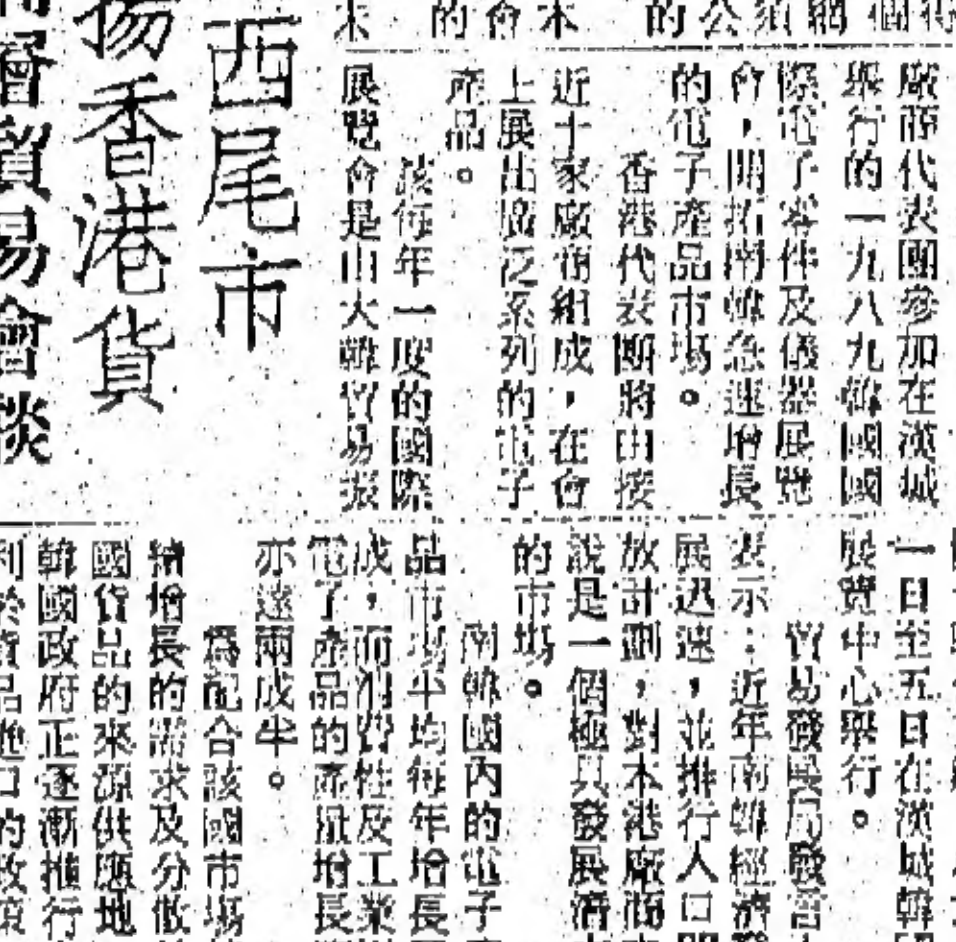 廠商代表團參加在漢城
舉行的一九八九韓國國
際電子零件及儀器展覽
會，開拓南韓急速增長
的電子產品市場。
香港代表團將由接
近十家廠商組成，在會
上展出廣泛系列的電子
產品。
該每年一度的國際
展覽會是由大韓貿易振
一日至五日在漢城韓
展覽中心舉行。
貿易發展局發言
表示：近年南韓經濟
展迅速，並推行入口
放計劃，對本港廠商
說是一個極具發展
的市場。
南韓國內的電子
品市場平均每年增長
成，而消費性及工業
電子產品的產量增長
亦達兩成半。
為配合該國市場
增長的需求及分散
國貨品的來源供應地
韓國政府正逐漸推行
西尾市
揚香港貨
貿易會談